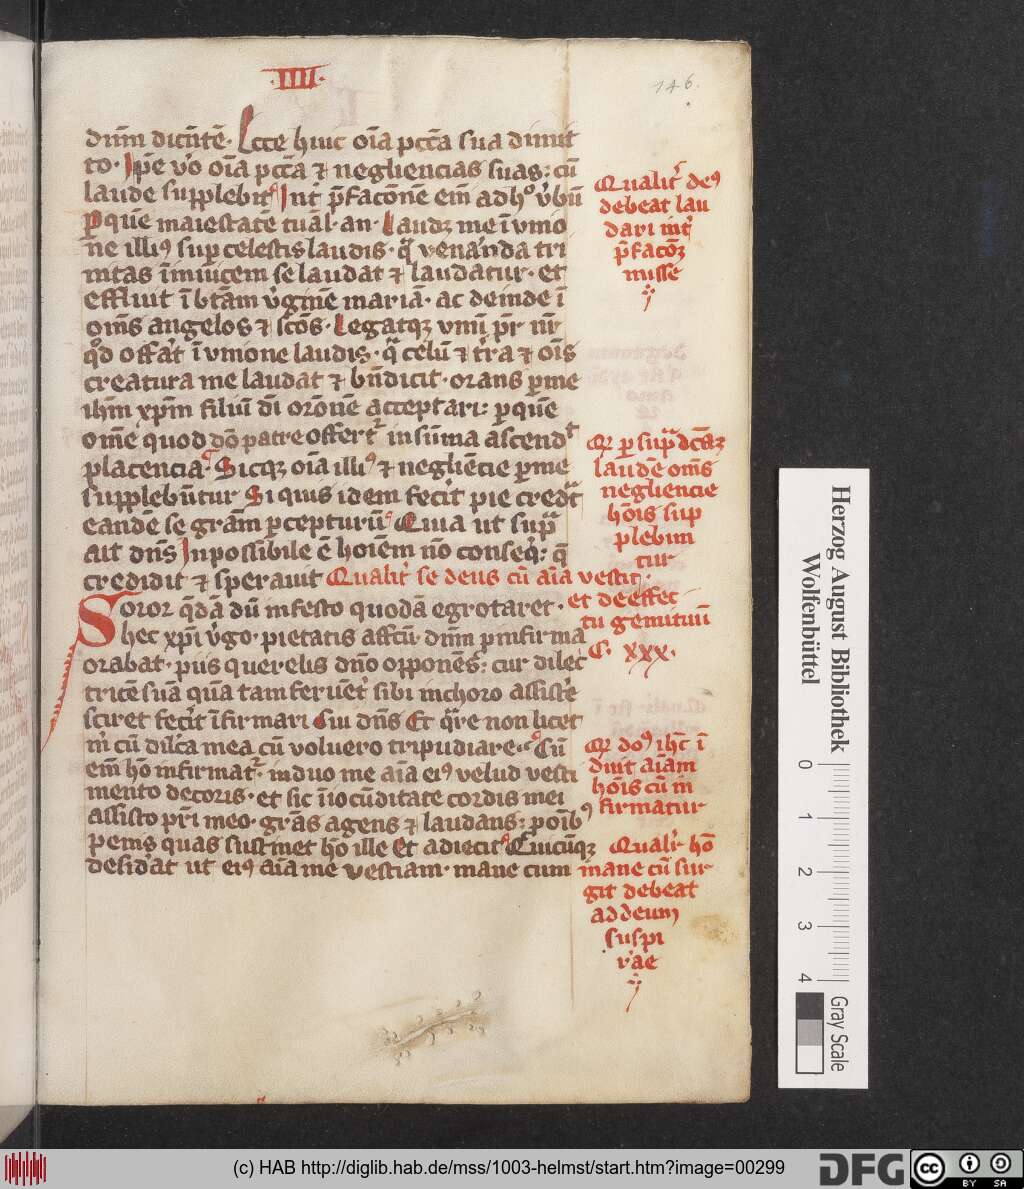 ·IIII·
146.
dnm̄ dicētē· Ecce huic oīa pcc̄a sua dimit
to· Ip̄e vo oīa pcc̄a ⁊ negliencias suas: cū
laude supplebit Int p̄facōnē eīn adhᵒ v̄bū
p quē maiestatē tuā· an· Laudꝫ me ī vnio
ne illiꝰ sup celestis laudis· q̄ venānda tri
nitas ī inuicem se laudat ⁊ laudatur· et
effluit ī btām v̄gīnē mariā· ac deinde ī
om̄s angelos ⁊ sc̄os· Legatqꝫ vnū pr̄ nr̄
qd offāt ī vnione laudis· q̄ celū ⁊ t̄ra ⁊ oīs
creatura me laudat ⁊ bn̄dicit· orans p me
ihm̄ xp̄m filiū dī orōnē acceptari: p quē
om̄e quod dō patre offert in sūma ascendᵗ
placencia· Sicqꝫ oīa illiꝰ ⁊ negliēcie p me
supplebūtur Si quis idem fecit pie credāt
eandē se grām p cepturū Cuia ut supᷓ
ait dn̄s Inpossibile ē hoiēm nō conseq̄: q̄
credidit ⁊ sperauit Qualit se deus cū aīa vestit·
et de effec
tu gemituū
C· xxx·
Soror q̄dā dū in festo quodā egrotaret·
hec xp̄i v̄go· pietatis affcū· dnm̄ p infirma
orabat· piis querelis dn̄o opponēs: cur dilec
tricē suā quā tam feruēt sibi in choro assist̄e
sciret fecit īfirmari Cui dn̄s Et q̄re non licet
m̄ cū dilc̄a mea cū voluero tripudiare· Cū
em̄ hō infirmat· induo me aīa eiꝰ velud vesti
mento decoris· et sic ī iocūditate cordis mei
assisto pr̄i meo· grās agens ⁊ laudans: p oībꝰ
penis quas sustinet hō ille Et adiecit Cuicūqꝫ
desid̄at ut eiꝰ aīā me vestiam· mane cum
Qualit deꝰ
debeat lau
dari int
p̄facōꝫ
misse
Qr p supᷓdc̄aꝫ
laudē om̄s
negliencie
hōis sup
plebūn
tur
Qr doꝰ ihc̄ ī
duit aīam
hōis cū in
firmatur
Qualit hō
mane cū sur
git debeat
ad deum
suspi
rare
Herzog August Bibliothek
Wolfenbüttel
0 1 2 3 4
Gray Scale
(c) HAB http://diglib.hab.de/mss/1003-helmst/start.htm?image=00299
DFG
cc BY SA